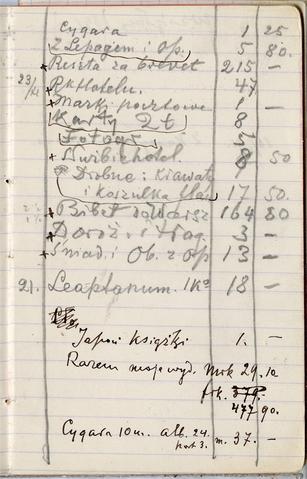 Cygara 1 25
Z Lepagem i Op. 5 80.
Reszta za brevet 215 —
23/ Rk Hotelu. 47
Marki pocztowe 1 —
Karty 2t 8
Fotogr.
hotel. 8 50
Drobne: Kiawat
i koszulka 17 50.
Bilet do Warsz 164 80
Doroż. i trag. 3 —
Śniad. i Ob. z Op 13 —
21. Leaptanum. 1Ko 18 —
Japoń Książki 1. —
Razem moje wyd. Mrk 29.10
frk. 379.
477 90.
Cygara 10 m. alb. 24.
port 3. m. 37. —